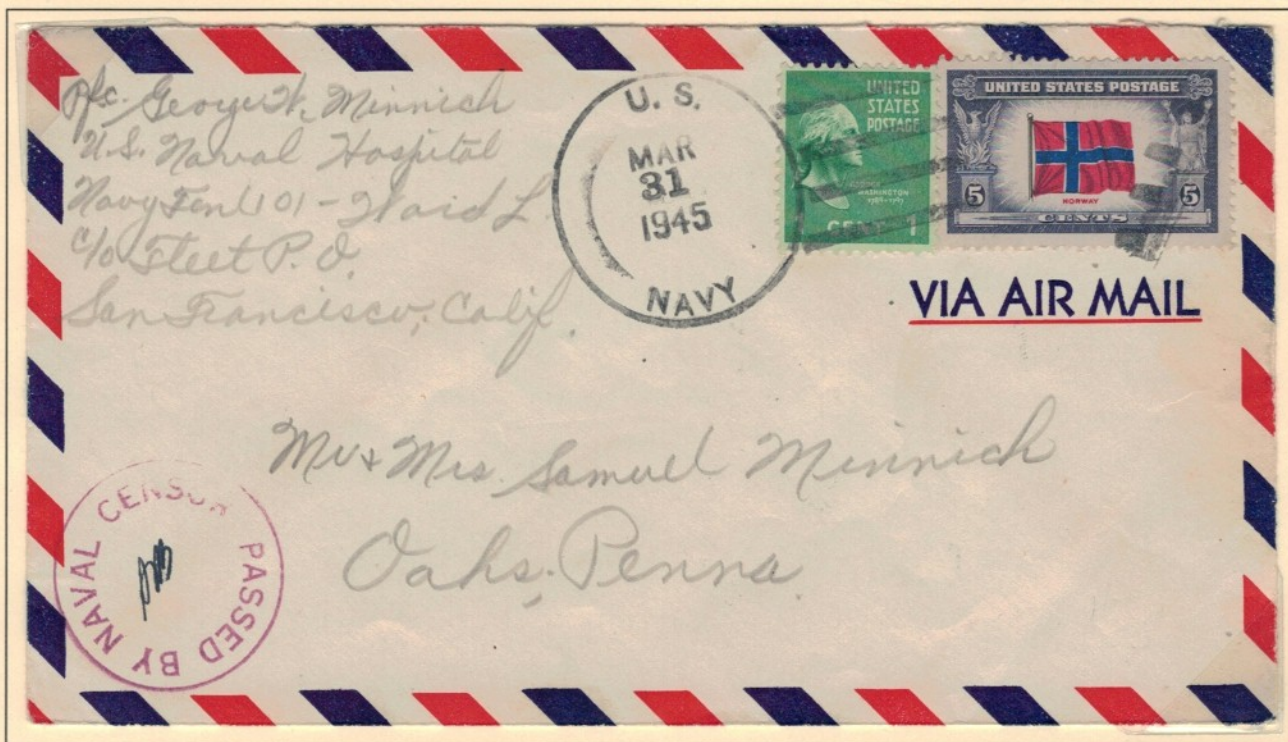 Pfc. George W. Minnich
U.S. Naval Hospital
Navy 10101 - Ward L.
c/o Fleet P.O.
San Francisco, Calif.
U. S.
MAR
31
1945
NAVY
UNITED
STATES
POSTAGE
GEORGE
WASHINGTON
1789-1797
CENT 1
UNITED STATES POSTAGE
NORWAY
5 CENTS 5
VIA AIR MAIL
Mr & Mrs Samuel Minnich
Oaks, Penna
PASSED BY NAVAL CENSOR